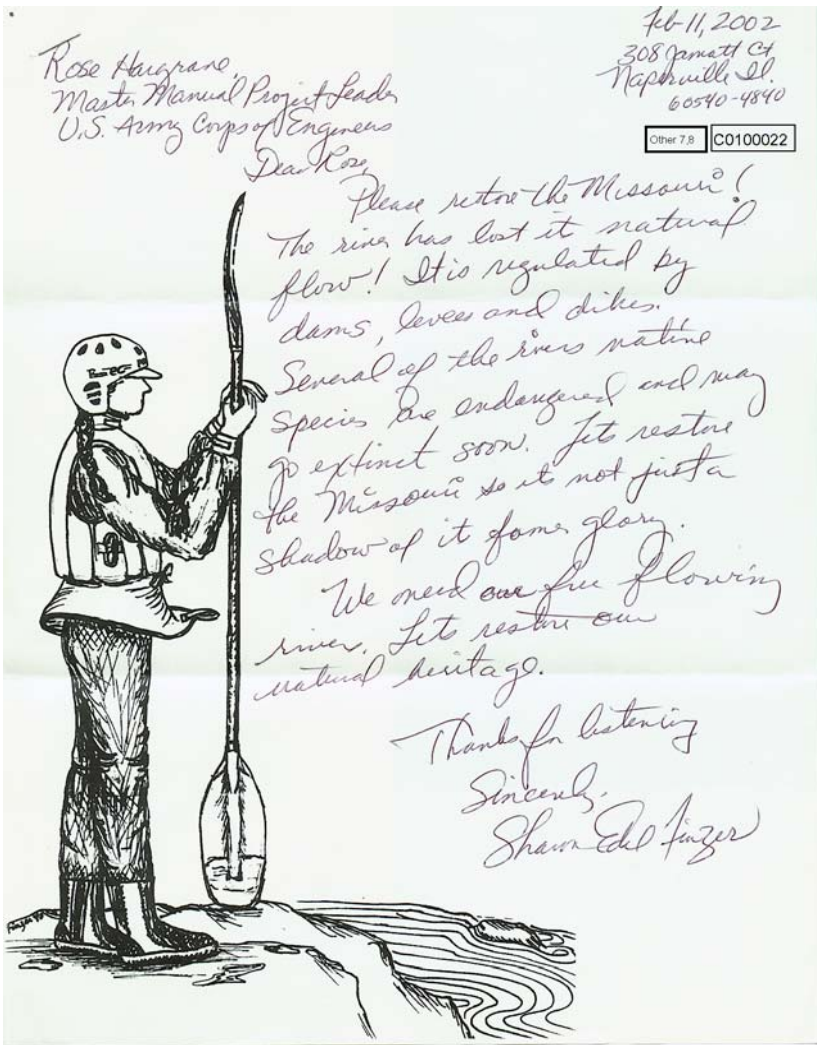 Feb 11, 2002
308 Jamatt Ct
Naperville Il.
60540-4840
Rose Hargrave,
Master Manual Project Leader
U.S. Army Corps of Engineers
Other 7,8
C0100022
Dear Rose,
Please restore the Missouri!
The river has lost it natural
flow! It is regulated by
dams, levees and dikes.
Several of the rivers native
species are endangered and may
go extinct soon. Lets restore
the Missouri so its not just a
shadow of it former glory.
We need our free flowing
river. Lets restore our
natural heritage.
Thanks for listening
Sincerely,
Sharon Finzer